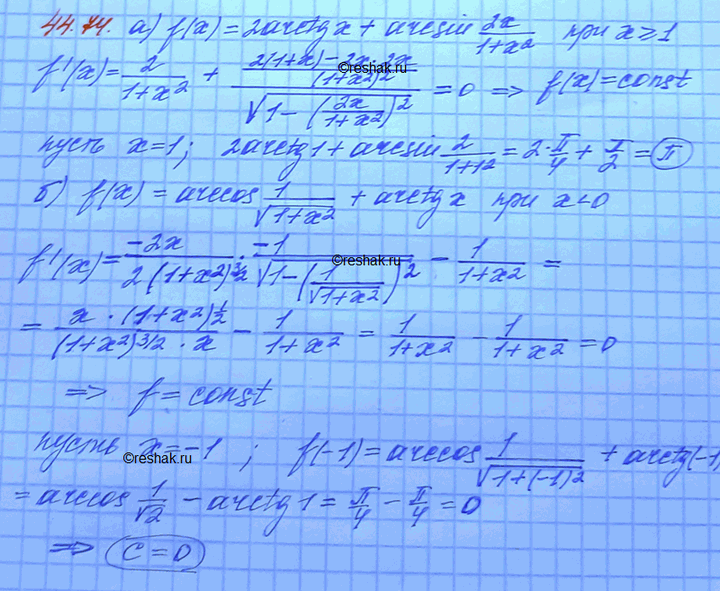 44.74. а) f(x) = 2arctgx + arcsin 2x/(1+x²) при x ≥ 1
f'(x) = 2/(1+x²) + ((2(1+x)-2x·2x)/(1+x²)²)/√(1-(2x/(1+x²))²) = 0 => f(x) = const
пусть x=1; 2arctg1 + arcsin 2/(1+1²) = 2·π/4 + π/2 = π
б) f(x) = arccos 1/√(1+x²) + arctgx при x<0
f'(x) = -2x/(2(1+x²)^(3/2)) · -1/√(1-(1/√(1+x²))²) - 1/(1+x²) =
= (x·(1+x²)^(1/2))/((1+x²)^(3/2)·x) - 1/(1+x²) = 1/(1+x²) - 1/(1+x²) = 0
=> f = const
пусть x=-1; f(-1) = arccos 1/√(1+(-1)²) + arctg(-1)
= arccos 1/√2 - arctg1 = π/4 - π/4 = 0
=> C = 0
©reshak.ru
©reshak.ru
©reshak.ru